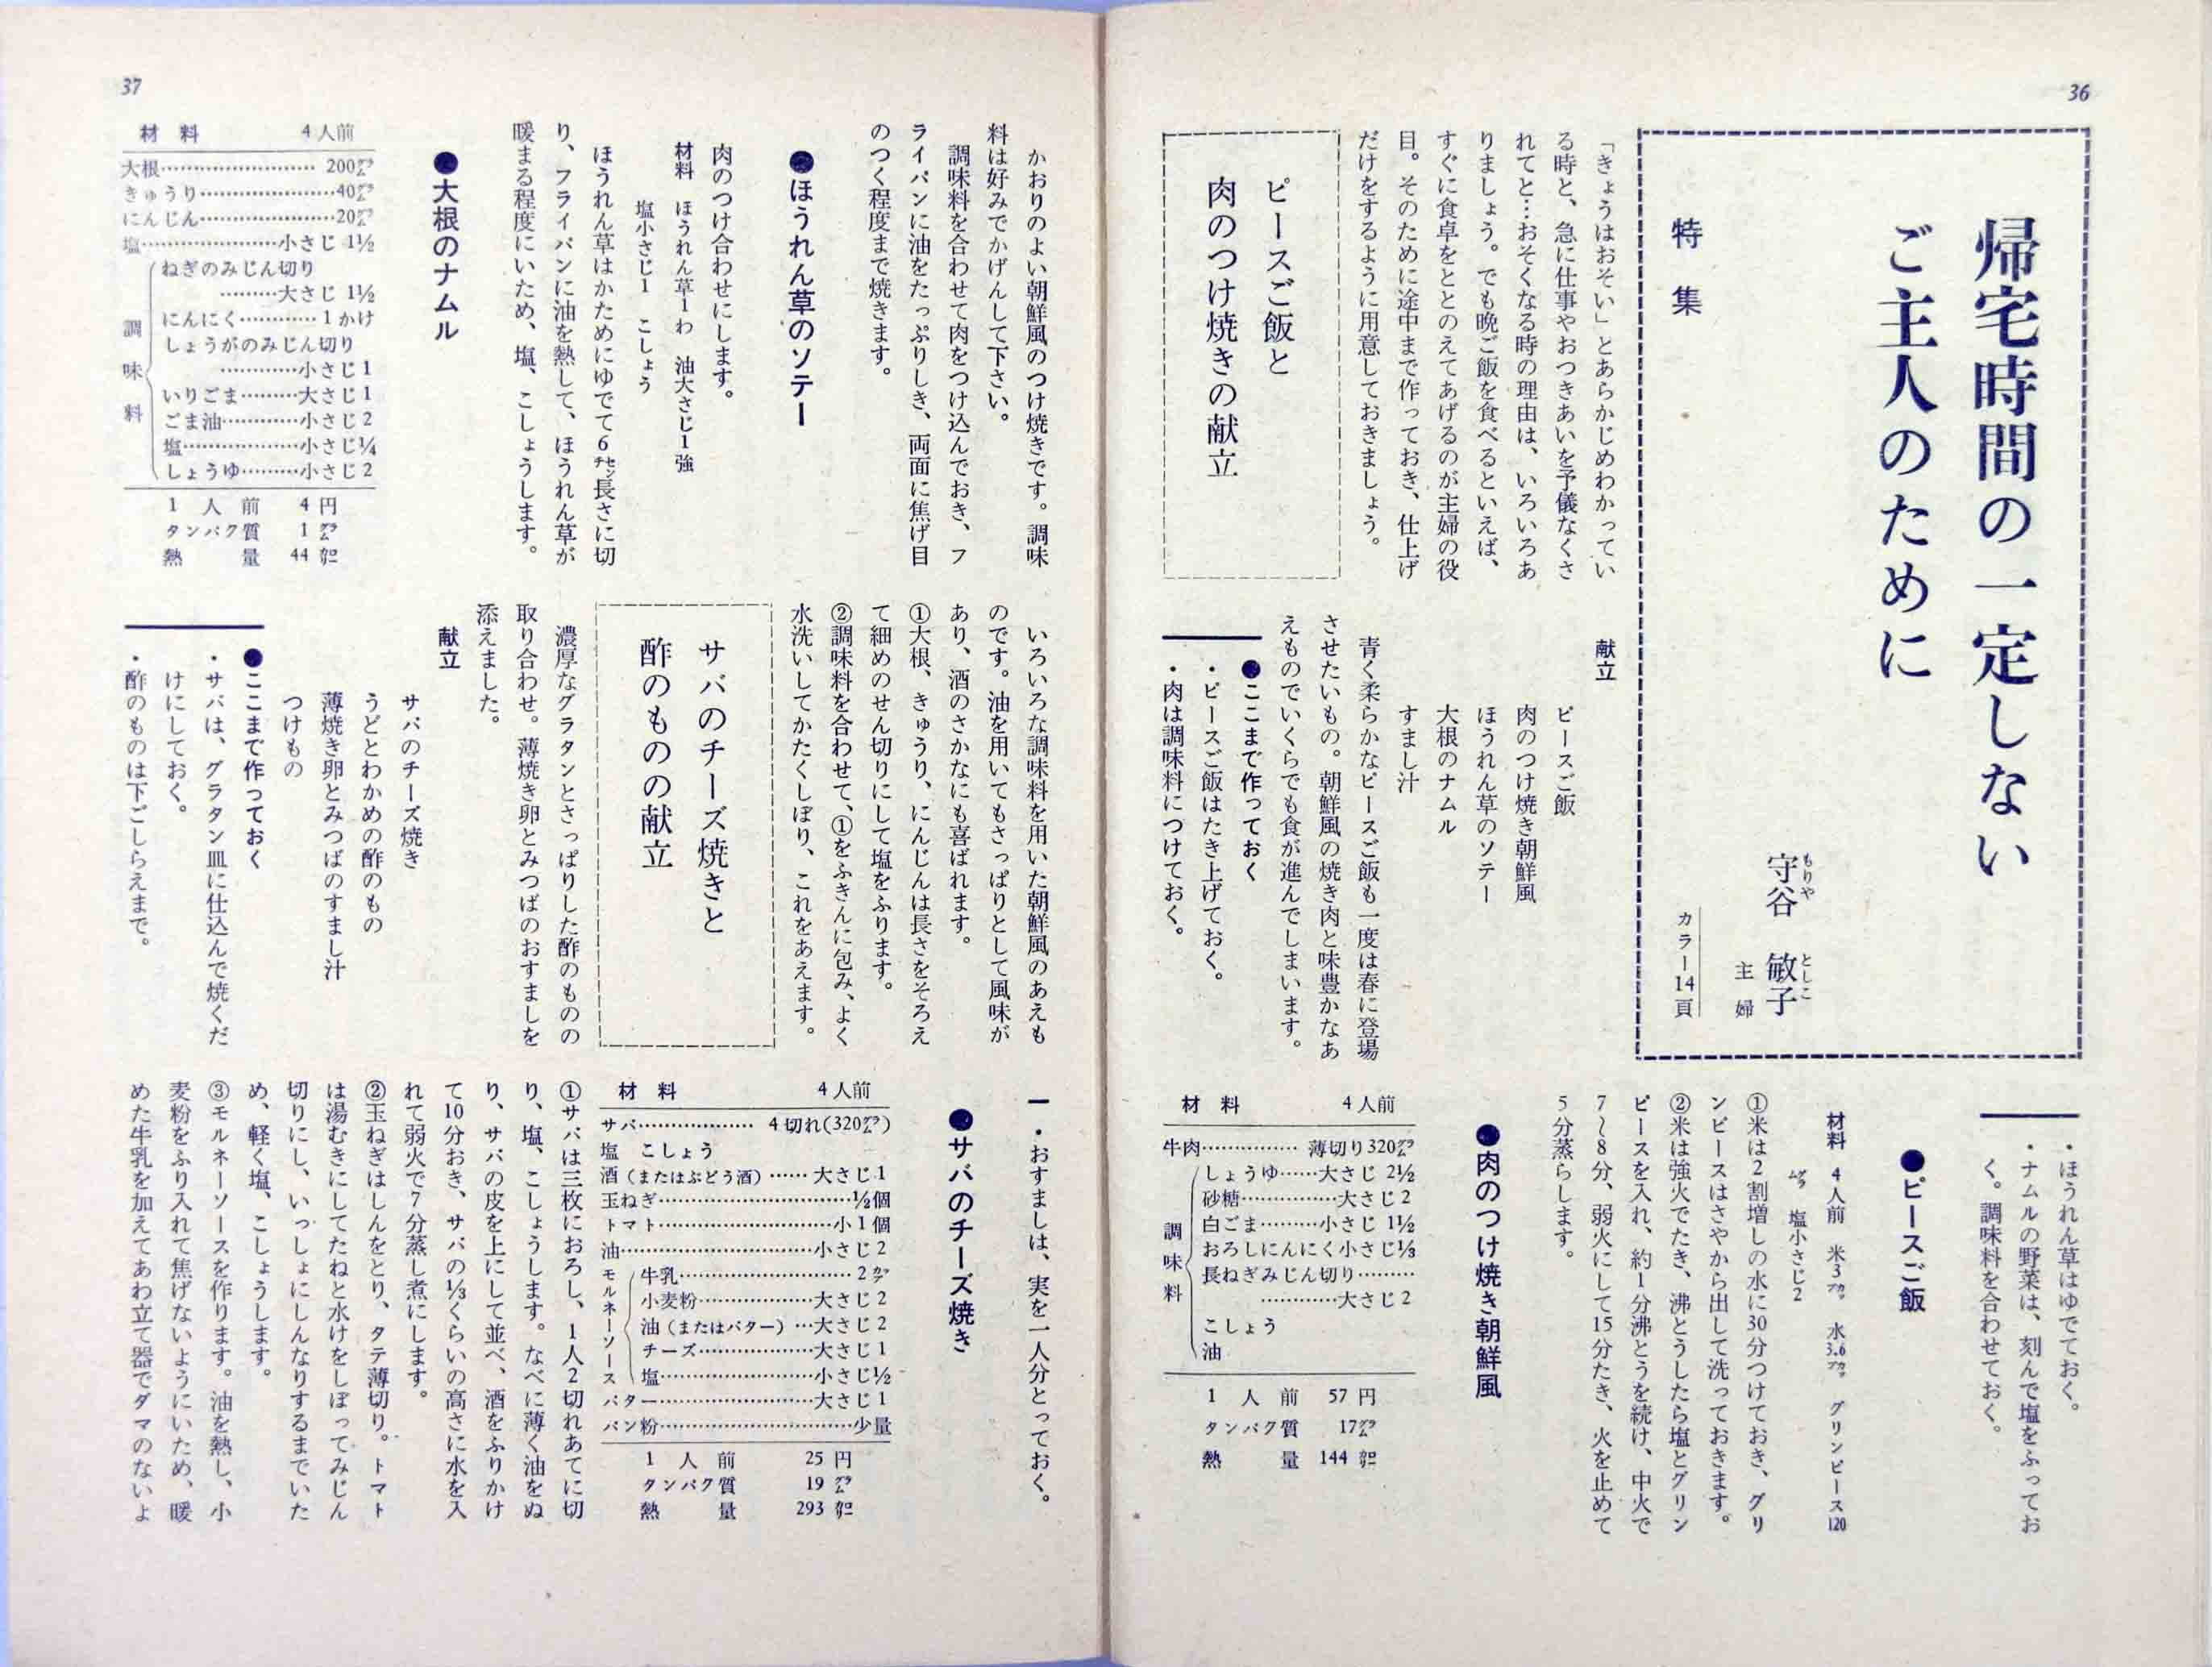 36
帰宅時間の一定しない
ご主人のために
守谷　敏子
もりや　としこ
主　婦
特　集
カラー14頁
「きょうはおそい」とあらかじめわかってい
る時と、急に仕事やおつきあいを予儀なくさ
れてと…おそくなる時の理由は、いろいろあ
りましょう。でも晩ご飯を食べるといえば、
すぐに食卓をととのえてあげるのが主婦の役
目。そのために途中まで作っておき、仕上げ
だけをするように用意しておきましょう。
ピースご飯と
肉のつけ焼きの献立
献立
ピースご飯
肉のつけ焼き朝鮮風
ほうれん草のソテー
大根のナムル
すまし汁
青く柔らかなピースご飯も一度は春に登場
させたいもの。朝鮮風の焼き肉と味豊かなあ
えものでいくらでも食が進んでしまいます。
●ここまで作っておく
・ピースご飯はたき上げておく。
・肉は調味料につけておく。
・ほうれん草はゆでておく。
・ナムルの野菜は、刻んで塩をふってお
く。調味料を合わせておく。
●ピースご飯
材料　4人前　米3カップ　水3.6カップ　グリンピース120
グラム　塩小さじ2
①米は2割増しの水に30分つけておき、グリ
ンピースはさやから出して洗っておきます。
②米は強火でたき、沸とうしたら塩とグリン
ピースを入れ、約1分沸とうを続け、中火で
7〜8分、弱火にして15分たき、火を止めて
5分蒸らします。
●肉のつけ焼き朝鮮風
材　料　4人前
牛肉…………… 薄切り320グラム
調味料
しょうゆ……大さじ 2½
砂糖……………大さじ 2
白ごま………小さじ 1½
おろしにんにく小さじ⅓
長ねぎみじん切り………
…………大さじ 2
こしょう
油
1　人　前　57 円
タンパク質　17グラム
熱　　量　144 カロリー
37
かおりのよい朝鮮風のつけ焼きです。調味
料は好みでかげんして下さい。
調味料を合わせて肉をつけ込んでおき、フ
ライパンに油をたっぷりしき、両面に焦げ目
のつく程度まで焼きます。
●ほうれん草のソテー
肉のつけ合わせにします。
材料　ほうれん草1わ　油大さじ1強
塩小さじ1　こしょう
ほうれん草はかためにゆでて6センチ長さに切
り、フライパンに油を熱して、ほうれん草が
暖まる程度にいため、塩、こしょうします。
●大根のナムル
材　料　4人前
大根…………………… 200グラム
きゅうり…………………40グラム
にんじん…………………20グラム
塩…………………小さじ 1½
調味料
ねぎのみじん切り
………大さじ 1½
にんにく…………1かけ
しょうがのみじん切り
…………小さじ 1
いりごま………大さじ 1
ごま油…………小さじ 2
塩………………小さじ¼
しょうゆ………小さじ 2
1　人　前　4 円
タンパク質　1 グラム
熱　　量　44 カロリー
いろいろな調味料を用いた朝鮮風のあえも
のです。油を用いてもさっぱりとして風味が
あり、酒のさかなにも喜ばれます。
①大根、きゅうり、にんじんは長さをそろえ
て細めのせん切りにして塩をふります。
②調味料を合わせて、①をふきんに包み、よく
水洗いしてかたくしぼり、これをあえます。
サバのチーズ焼きと
酢のものの献立
濃厚なグラタンとさっぱりした酢のものの
取り合わせ。薄焼き卵とみつばのおすましを
添えました。
献立
サバのチーズ焼き
うどとわかめの酢のもの
薄焼き卵とみつばのすまし汁
つけもの
●ここまで作っておく
・サバは、グラタン皿に仕込んで焼くだ
けにしておく。
・酢のものは下ごしらえまで。
・おすましは、実を一人分とっておく。
●サバのチーズ焼き
材　料　4人前
サバ……………… 4切れ(320グラム)
塩　こしょう
酒（またはぶどう酒）……大さじ 1
玉ねぎ…………………………½個
トマト………………………小1個
油…………………………小さじ 2
モルネーソース
牛乳……………………… 2カップ
小麦粉………………大さじ 2
油（またはバター）…大さじ 2
チーズ………………大さじ 1
塩……………………小さじ½
バター……………………大さじ 1
パン粉…………………………少量
1　人　前　25 円
タンパク質　19 グラム
熱　　量　293 カロリー
①サバは三枚におろし、1人2切れあてに切
り、塩、こしょうします。なべに薄く油をぬ
り、サバの皮を上にして並べ、酒をふりかけ
て10分おき、サバの⅓くらいの高さに水を入
れて弱火で7分蒸し煮にします。
②玉ねぎはしんをとり、タテ薄切り。トマト
は湯むきにしてたねと水けをしぼってみじん
切りにし、いっしょにしんなりするまでいた
め、軽く塩、こしょうします。
③モルネーソースを作ります。油を熱し、小
麦粉をふり入れて焦げないようにいため、暖
めた牛乳を加えてあわ立て器でダマのないよ